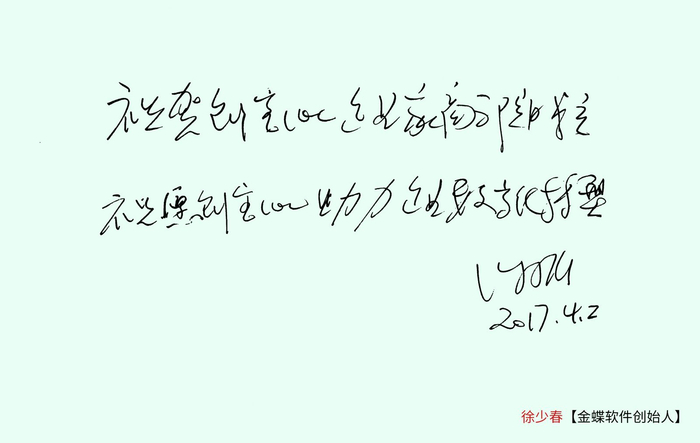 祝贺创客100企业家商

祝愿创客100助力企业数字化转型
2017.4.2
徐少春【金蝶软件创始人】